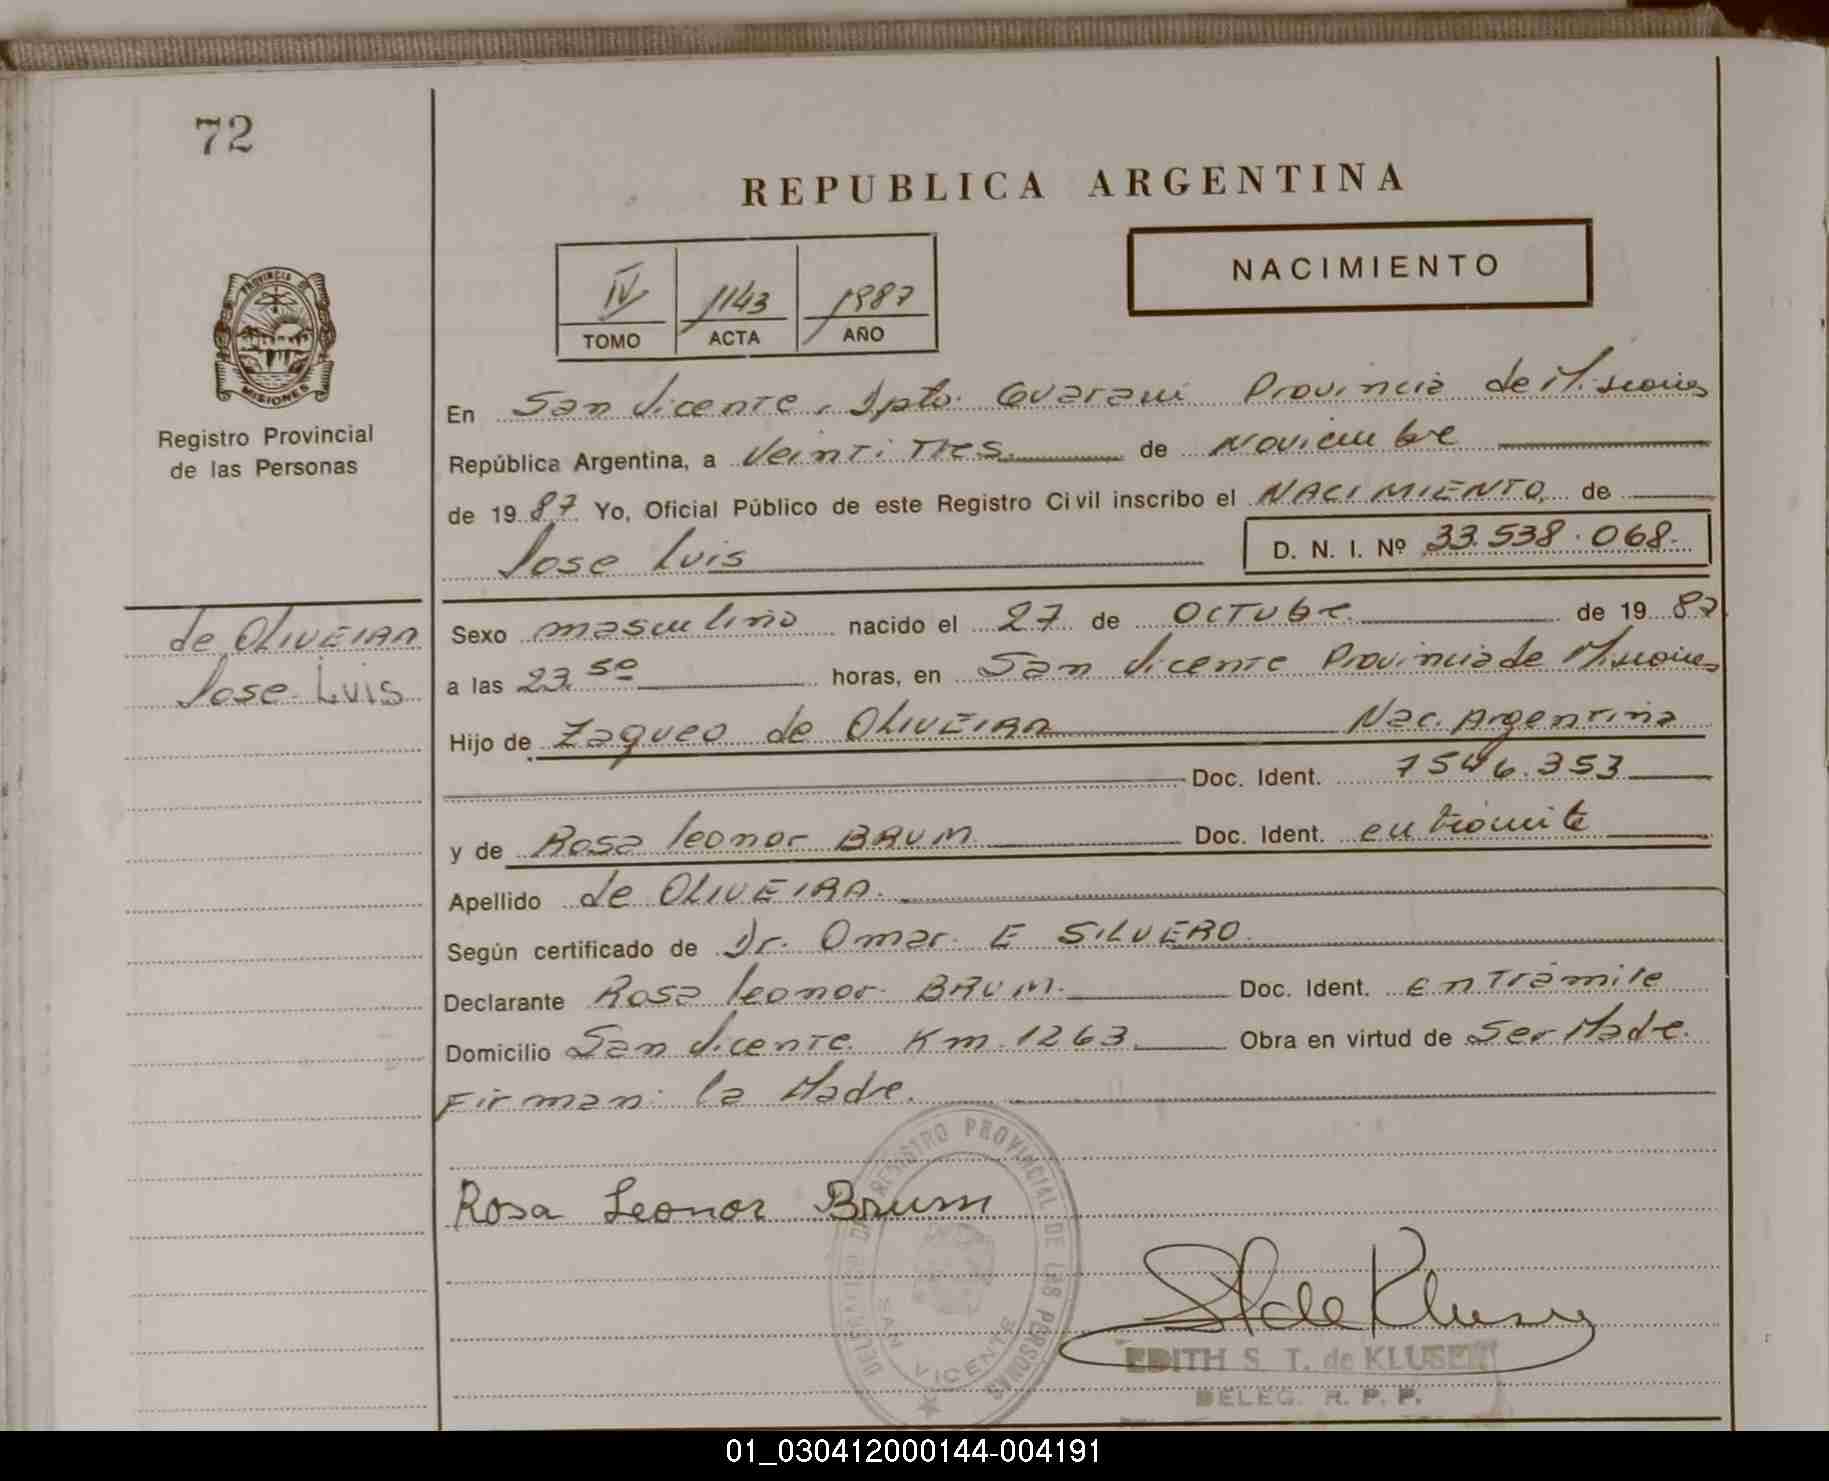 72
REPUBLICA ARGENTINA
NACIMIENTO
IV 1143 1987
TOMO ACTA AÑO
PROVINCIA DE
MISIONES
Registro Provincial
de las Personas
En San Vicente, Dpto. Guarani Provincia de Misiones
República Argentina, a Veinti Tres de Noviembre
de 1987 Yo, Oficial Público de este Registro Civil inscribo el NACIMIENTO de
Jose Luis D. N. I. Nº 33.538.068.
de OLIVEIRA
Jose Luis
Sexo masculino nacido el 27 de Octubre de 1987
a las 23.50 horas, en San Vicente Provincia de Misiones
Hijo de Zaqueo de OLIVEIRA Nac. Argentina
Doc. Ident. 7546.353
y de Rosa Leonor BRUM Doc. Ident. en trámite
Apellido de OLIVEIRA.
Según certificado de Dr. Omar E SILVERO.
Declarante Rosa Leonor BRUM. Doc. Ident. en Trámite
Domicilio San Vicente Km. 1263. Obra en virtud de Ser Madre.
Firman: la Madre.
Rosa Leonor Brum
DEL REGISTRO PROVINCIAL DE LAS PERSONAS
SAN VICENTE
EDITH S. T. de KLUSENER
DELEG. R. P. P.
01_030412000144-004191